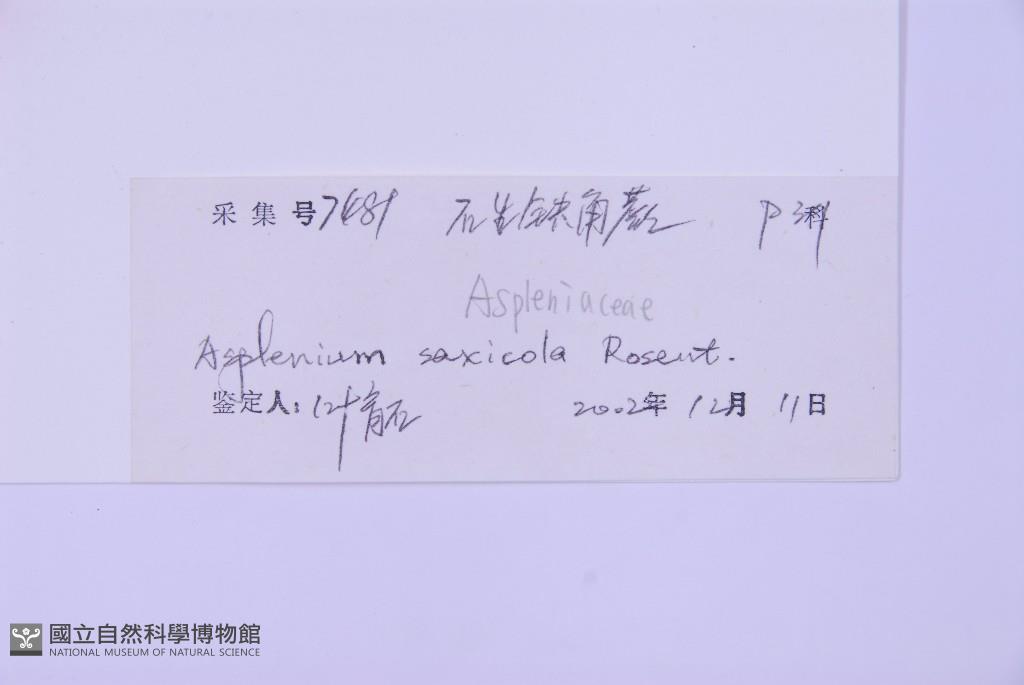 采集号 7481 石生铁角蕨 P 3 科
Aspleniaceae
Asplenium saxicola Rosent.
鉴定人: 叶育石 2002年 12月 11日
國立自然科學博物館
NATIONAL MUSEUM OF NATURAL SCIENCE